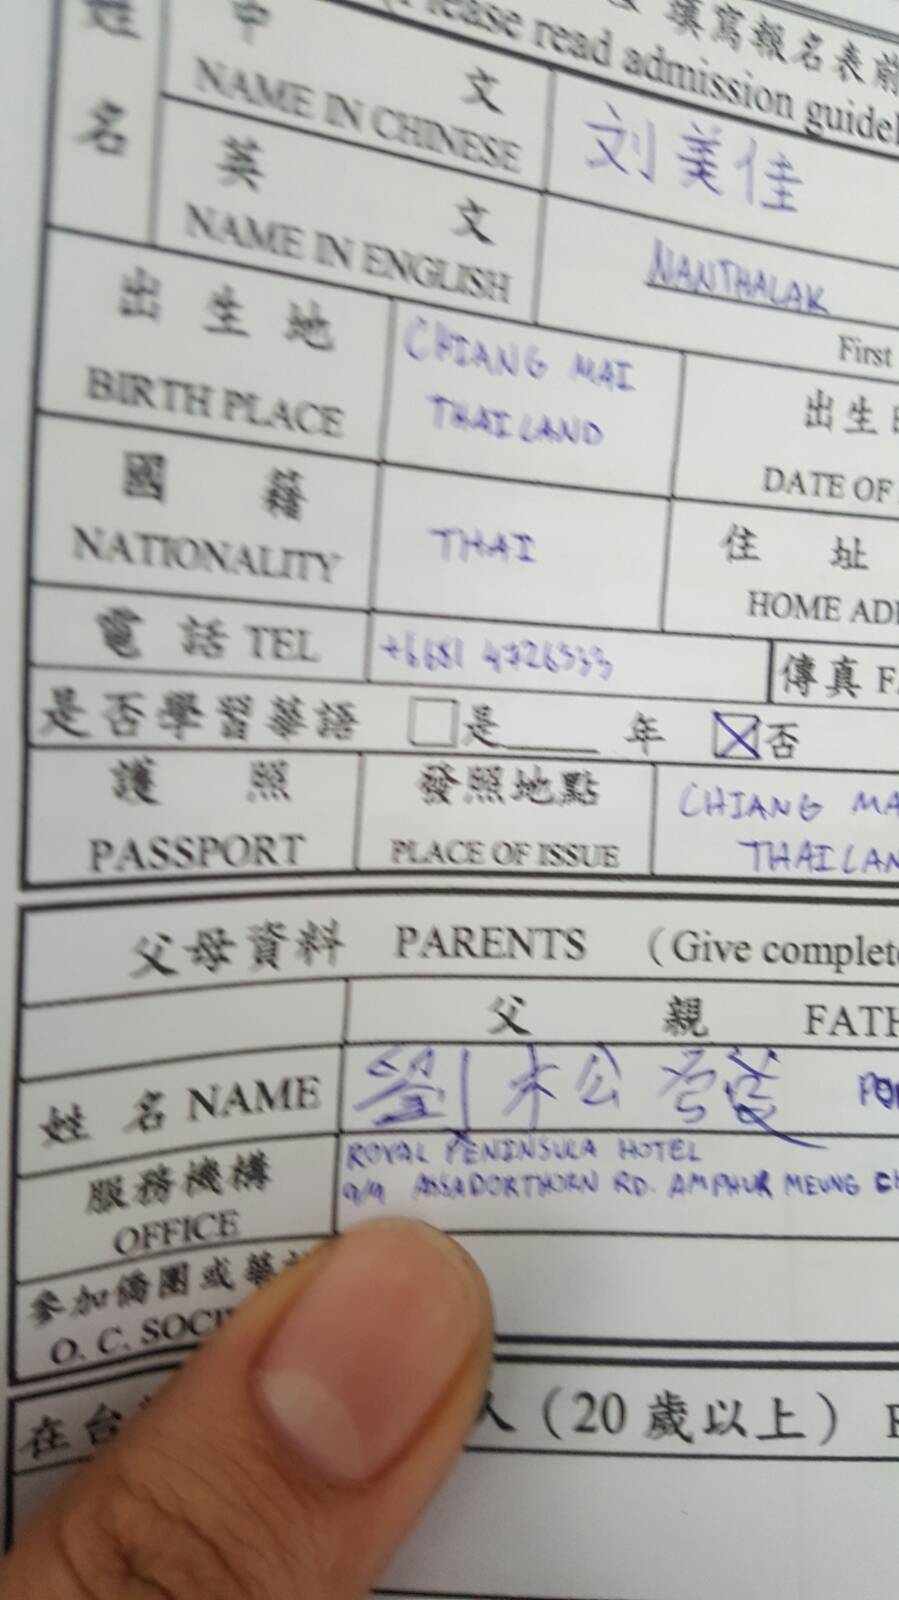 填寫報名表前
(Please read admission guidel
姓名
中文
NAME IN CHINESE
刘美佳
英文
NAME IN ENGLISH
NANTHALAK
First
出生地
BIRTH PLACE
CHIANG MAI
THAILAND
出生
DATE OF
國籍
NATIONALITY
THAI
住址
HOME ADD
電話 TEL
+6681 4726333
傳真 FA
是否學習華語 □是____年 ☒否
護照
PASSPORT
發照地點
PLACE OF ISSUE
CHIANG MA
THAILAN
父母資料 PARENTS (Give complete
父親 FATH
姓名 NAME
劉木公
服務機構
OFFICE
ROYAL PENINSULA HOTEL
ASSADORTHORN RD. AMPHUR MEUNG
參加僑團或華
O. C. SOCI
在台
人（20歲以上）